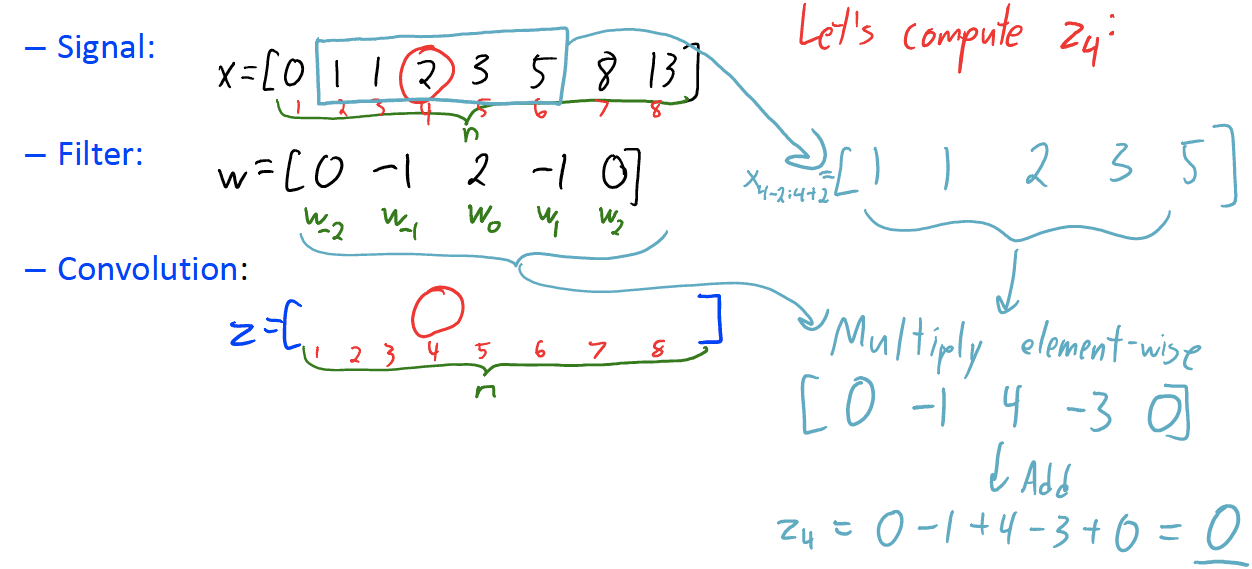 – Signal:
x=[0 1 1 2 3 5 8 13]
1 2 3 4 5 6 7 8
n
– Filter:
w=[0 -1 2 -1 0]
w₋₂ w₋₁ w₀ w₁ w₂
– Convolution:
z=[ ]
1 2 3 4 5 6 7 8
n
Let's compute z₄:
x₄₋₂:₄₊₂=[1 1 2 3 5]
Multiply element-wise
[0 -1 4 -3 0]
Add
z₄ = 0-1+4-3+0 = 0